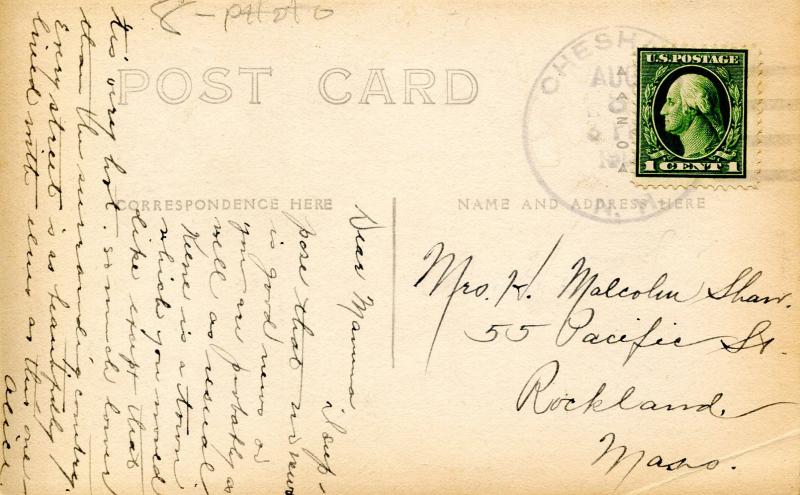 POST CARD
CORRESPONDENCE HERE
NAME AND ADDRESS HERE
CHESH
AUG
N. H.
U.S. POSTAGE
1 CENT 1
Mrs. H. Malcolm Shaw.
55 Pacific St.
Rockland.
Mass.
Dear Mamma
I sup-
pose that no news
is good news or
you are probably as
well as usual.
Keene is a town
which you would
like except that
tis very hot. so much lower
than the surrounding country.
Every street is as beautifully
lined with elms as this one.
Alice.